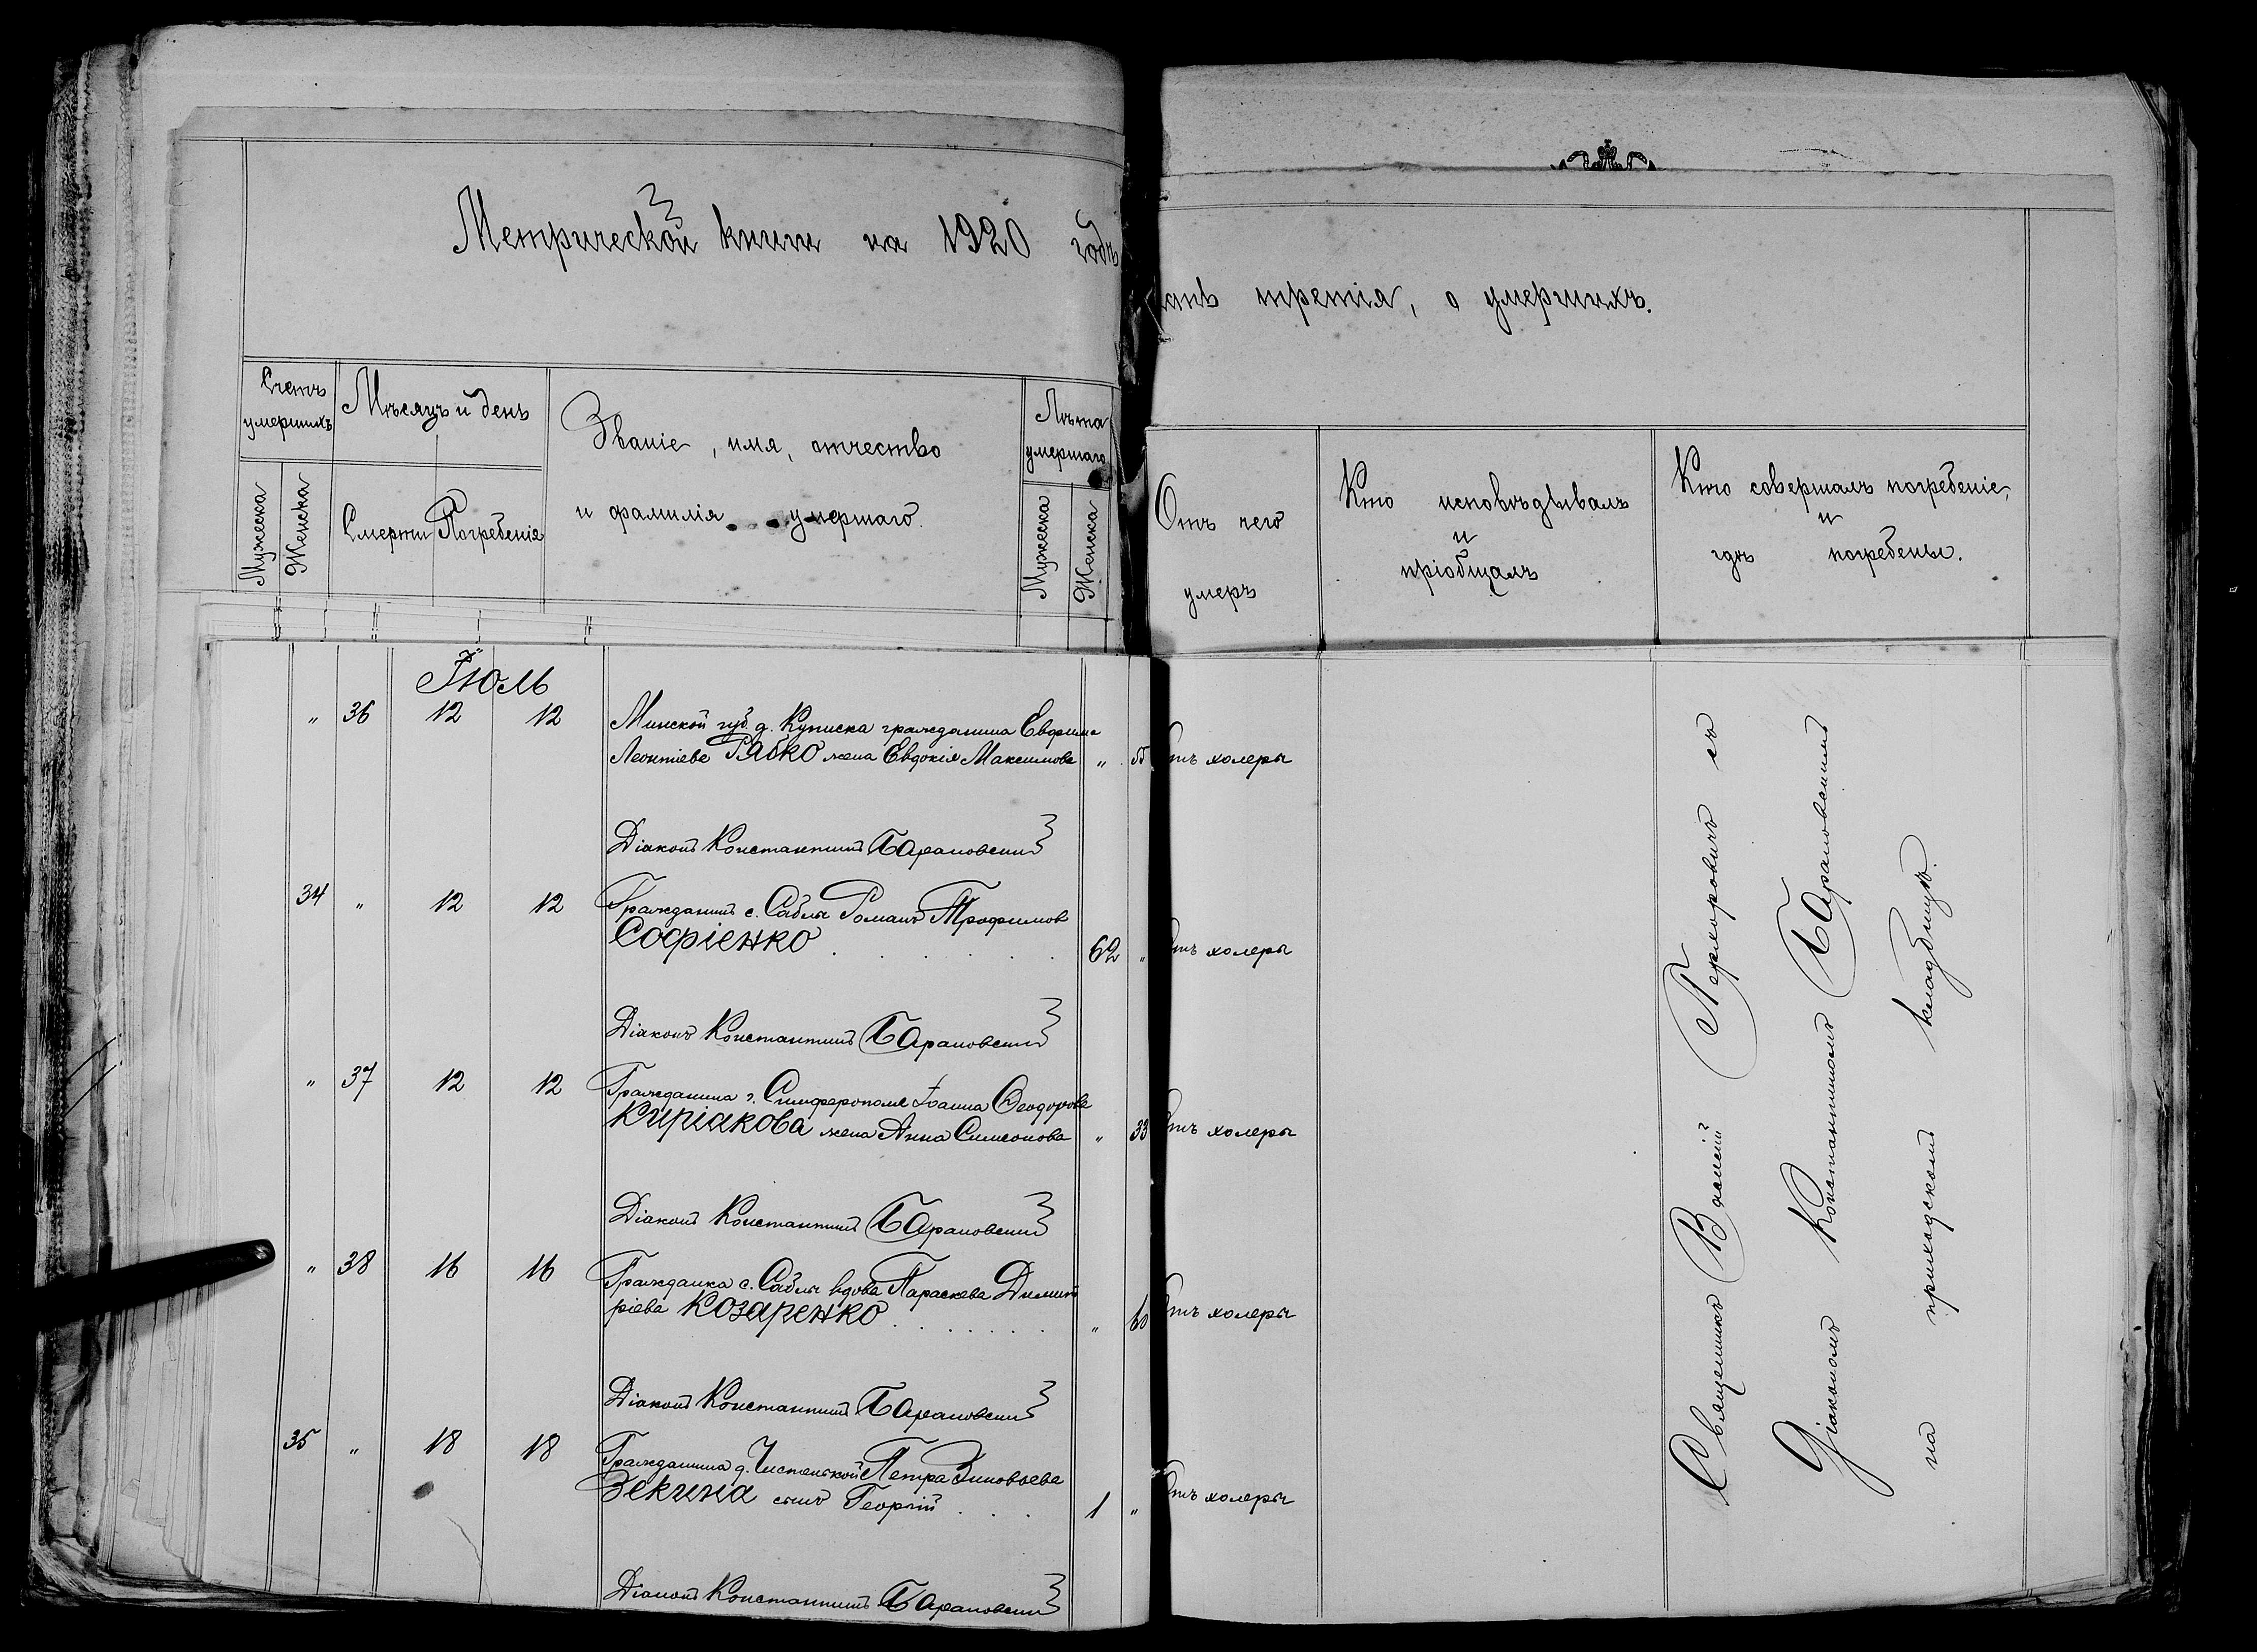 Метрической книги на 1920 годъ
Счетъ умершихъ
Мужеска
Женска
Мѣсяцъ и день
Смерти
Погребенія
Званіе, имя, отчество
и фамилія умершаго.
Лѣта умершаго
Мужеска
Женска
третія, о умершихъ.
Отъ чего
умеръ
Кто исповѣдывалъ
и
пріобщалъ
Кто совершалъ погребеніе,
и
гдѣ погребены.
Іюль
" 36 12 12 Минской губ. д. гражданина
Леонтіева Рябко жена Евдокія Максимова " 55 отъ холеры
Діаконъ Константинъ Барановскій
34 " 12 12 Гражданинъ с. Саблы Романъ Трофимов
Софіенко 62 " Отъ холеры
Діаконъ Константинъ Барановскій
" 37 12 12 Гражданина г. Симферополя Іоанна Ѳеодорова
Киріакова жена Анна Симеонова " 33 Отъ холеры
Діаконъ Константинъ Барановскій
" 38 16 16 Гражданка с. Саблы вдова Параскева Димит
ріева Козаренко " 60 Отъ холеры
Діаконъ Константинъ Барановскій
35 " 18 18 Гражданина д. Чистенькой Петра Зиновьева
Зекина сынъ Георгій 1 " Отъ холеры
Діаконъ Константинъ Барановскій
Священникъ Василій Перхоровичъ съ
Діакономъ Константиномъ Барановскимъ
на приходскомъ кладбищѣ.